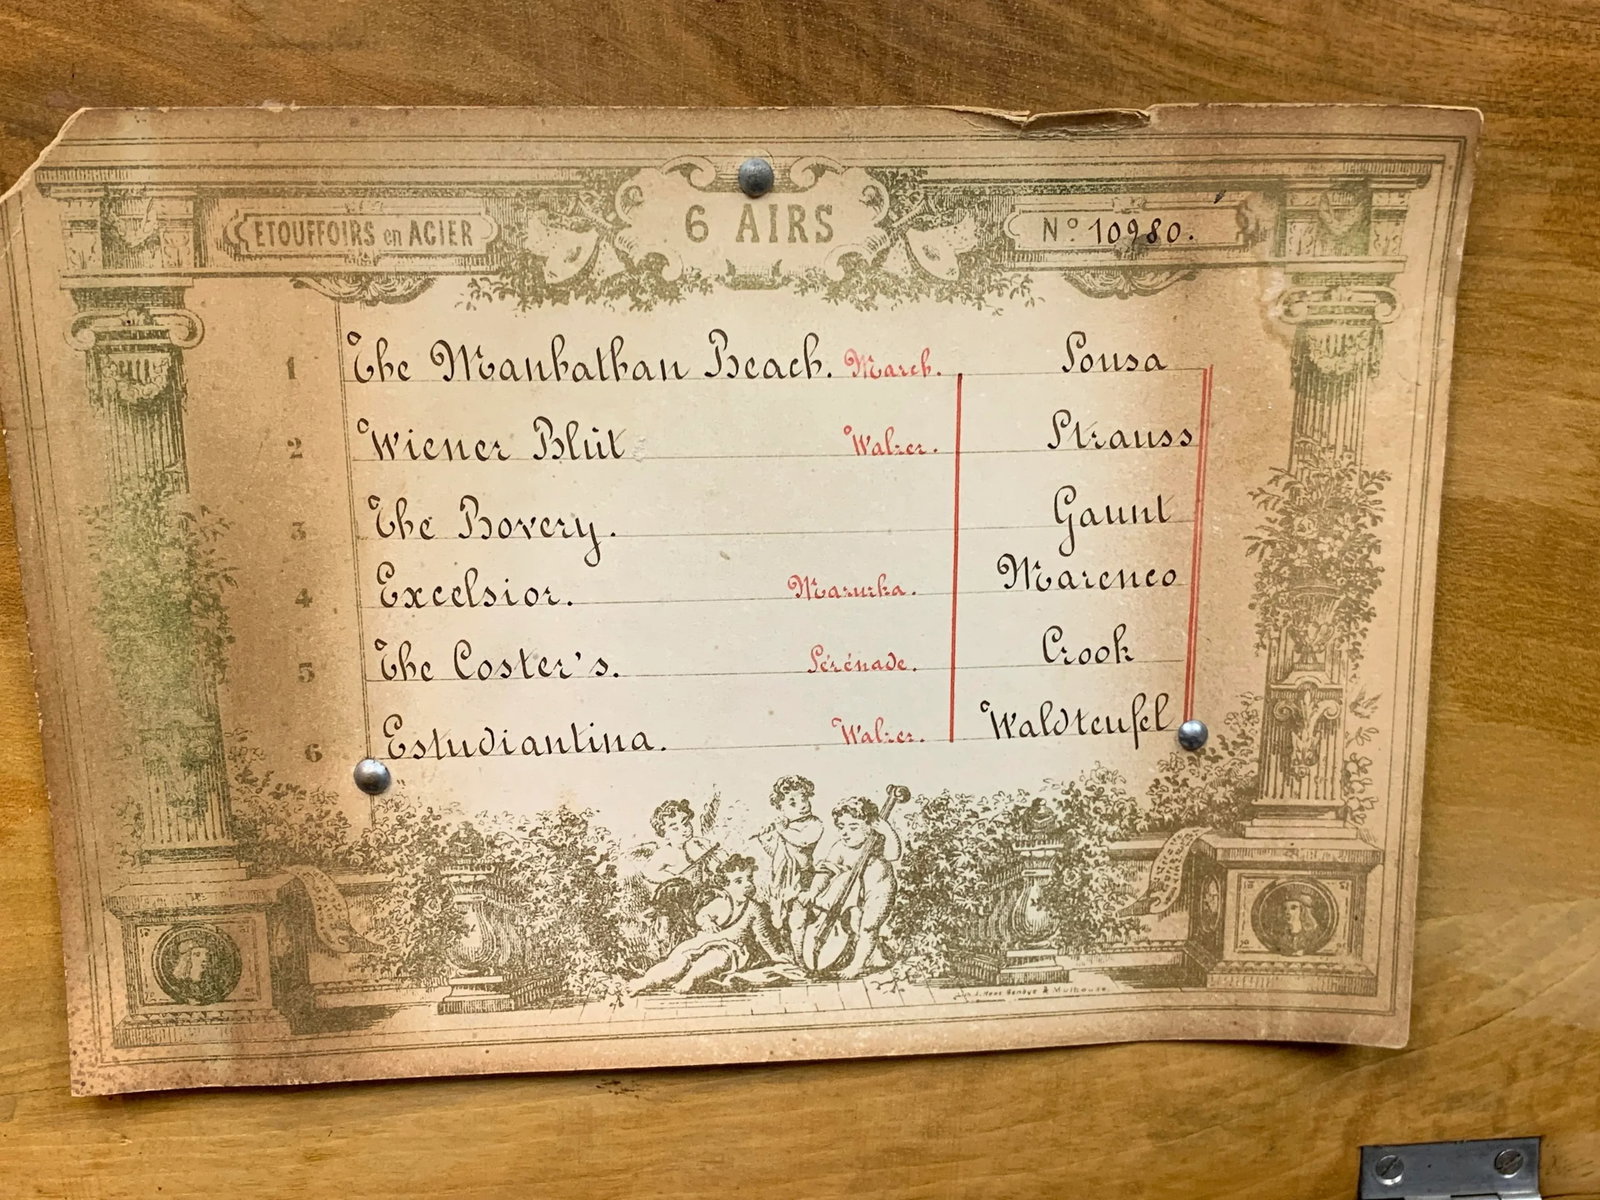 ETOUFFOIRS en ACIER
6 AIRS
Nº 10980.
1 The Manhathan Beach. March. Sousa
2 Wiener Blüt Walzer. Strauss
3 The Bovery. Gaunt
4 Excelsior. Mazurka. Marenco
5 The Coster's. Sérénade. Crook
6 Estudiantina. Walzer. Waldteufel
Genève & Mulhouse.